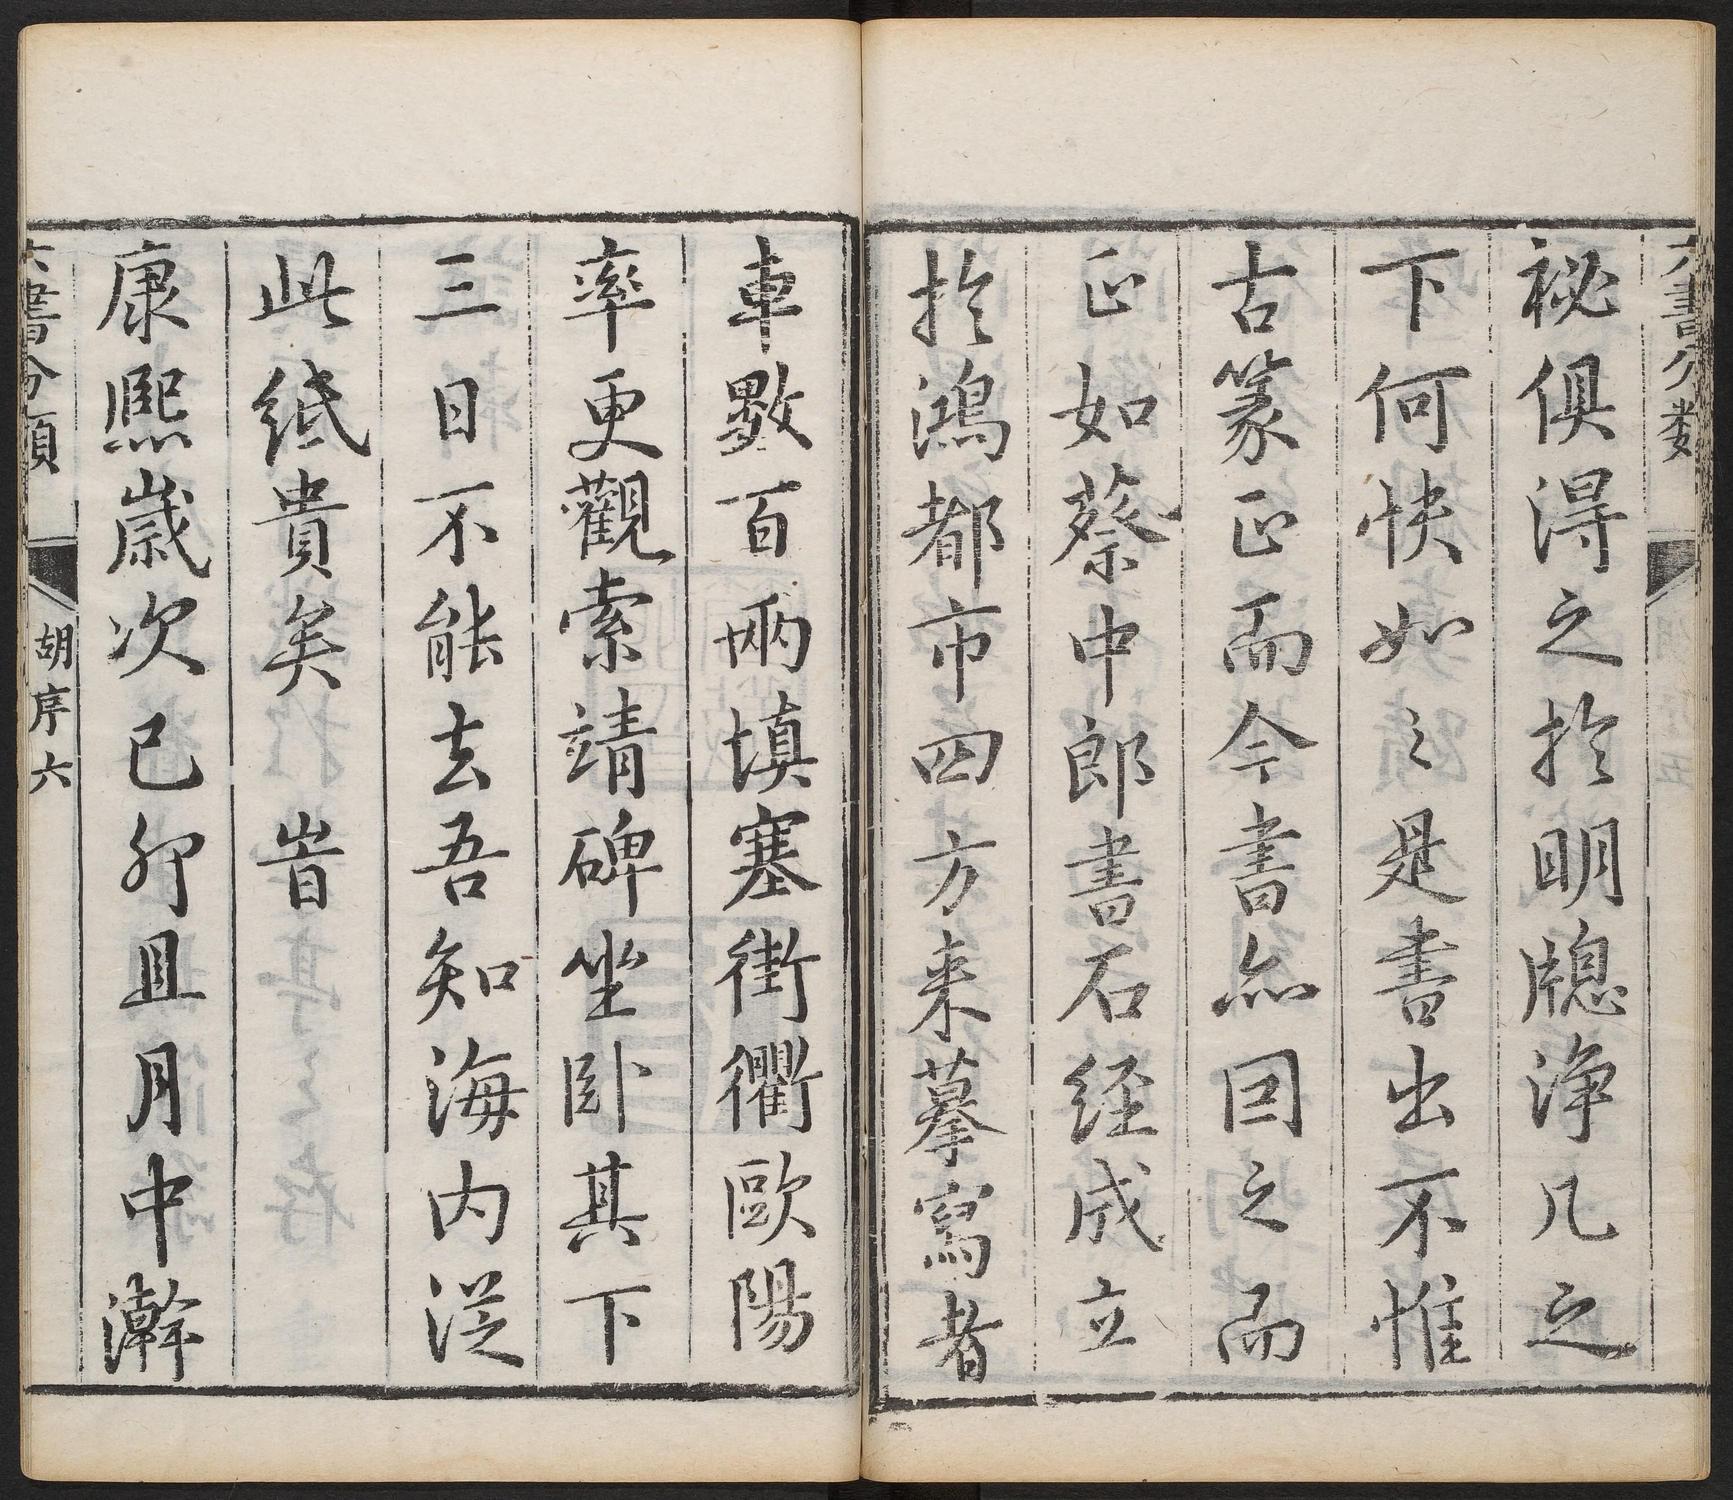 六書分類
祕俱淂之扵明牕淨几之
下何快如之是書出不惟
古篆正而今書亦因之而
正如蔡中郎書石經成立
扵鴻都市四方来摹寫者
車數百兩填塞街衢歐陽
率更觀索靖碑坐卧其下
三日不能去吾知海内從
此紙貴矣 旹
康熙歲次己卯且月中澣
六書分類
胡序六